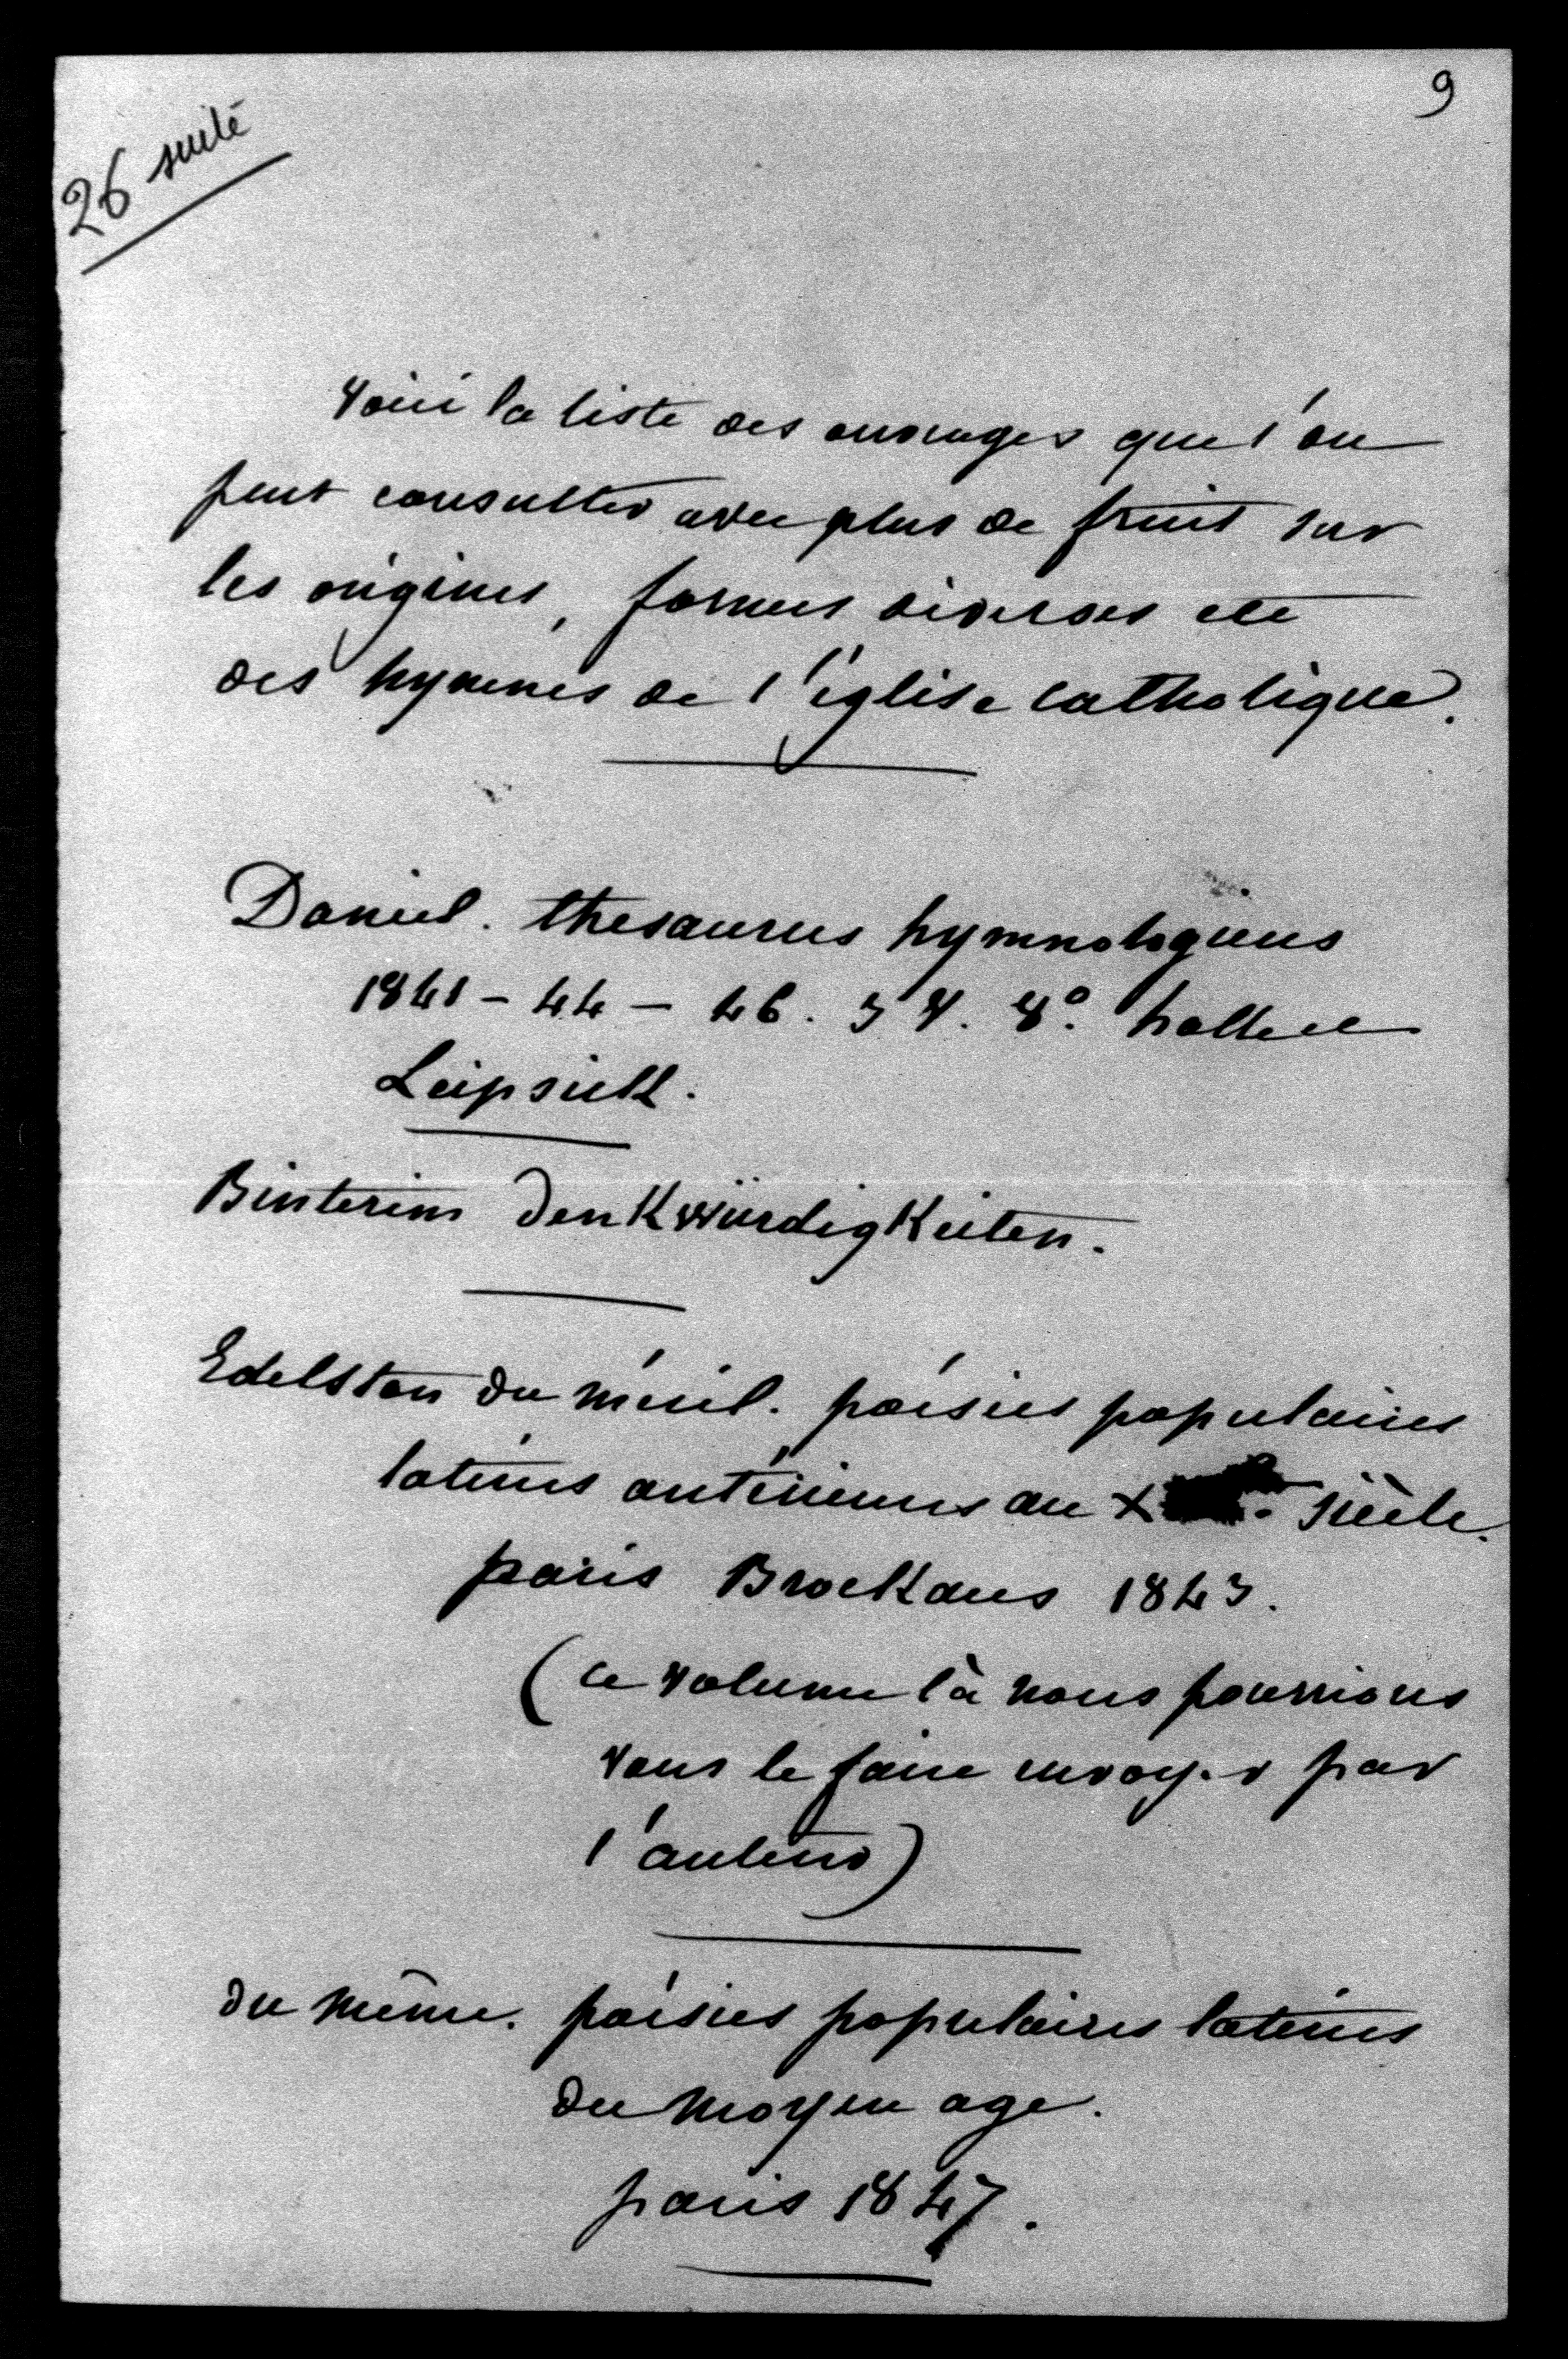 9
26 suite
voici la liste des ouvrages que l'on
peut consulter avec plus de fruit sur
les origines, formes diverses etc
des hymnes de l'église catholique.
Daniel. thesaurus hymnologicus
1841 - 44 - 46. 3 V. 8°. halle et
Leipsick.
Binterim DenKwürdigKeiten.
Edelstan du méril. poésies populaires
latines antérieures au X siècle.
paris BrocKaus 1843.
(ce volume là nous pourrions
vous le faire envoyer par
l'auteur)
du même. poésies populaires latines
du moyen age.
paris 1847.